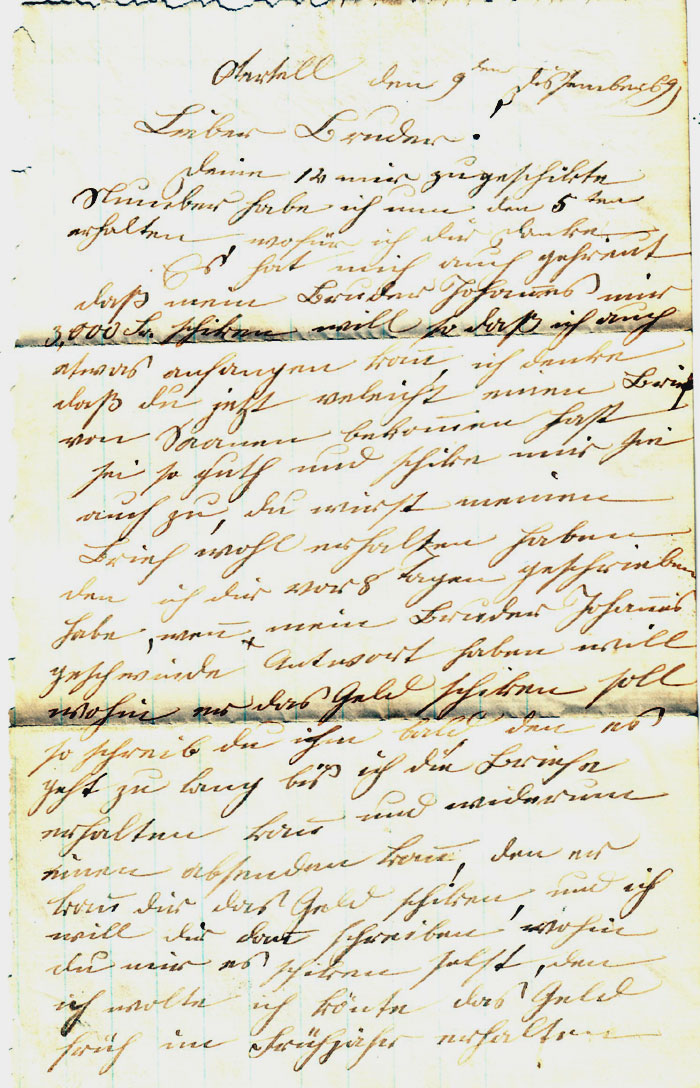 den 9ten Dissember 69
Lieber Bruder.
Deine 12 mir zugeschikte
Numeber habe ich nun den 5ten
erhalten wofür ich dir danke
Es hat mich auch gefreut
daß mein Bruder Johannes mir
3,000 Fr. schiken will so daß ich auch
etwas anfangen kan̅, ich denke
daß du jetzt veleicht einen Brief
von Saanen bekom̅en hast
sei so guth und schike mir sie
auch zu, du wirst meinen
Brief wohl erhalten haben
den ich dir vor 8 Tagen geschrieben
habe, wen̅ mein Bruder Johannes
geschwinde Antwort haben will
wohin er das Geld schiken soll
so schreib du ihm bald den es
geht zu lang bis ich die Briefe
erhalten kan̅ und widerum
einen absenden kan̅, den er
kan̅ dir das Geld schiken, und ich
will dir dan̅ schreiben, wohin
du mir es schiken solst, den
ich wolte ich könte das Geld
früh im Frühjahr erhalten